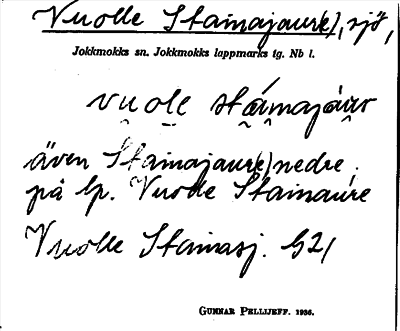 Vuolle Stainajaure(e), sjö,
Jokkmokks sn. Jokkmokks lappmarks tg. Nb l.
vuole stáinajáur
även Stainajaur(e) nedre.
på lp. Vuolle Stainaure
Vuolle Stainasj. G2,
Gunnar Pellijeff. 1936.